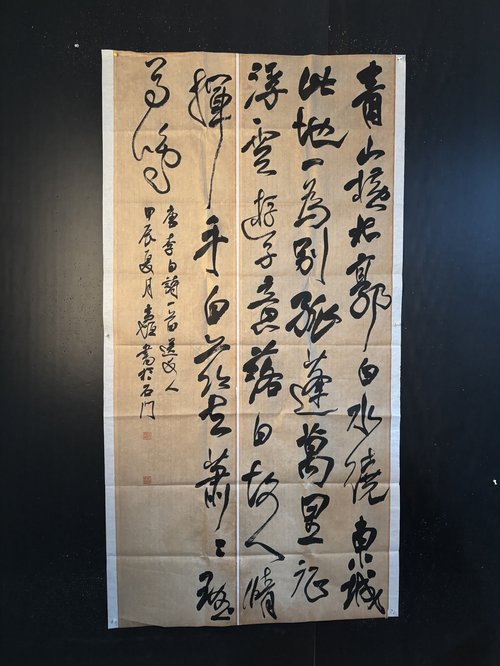 青山橫北郭白水繞東城
此地一為別孤蓬萬里征
浮雲遊子意落日故人情
揮手自茲去蕭々班
馬鳴
唐李白詩一首送友人
甲辰夏月書於石门